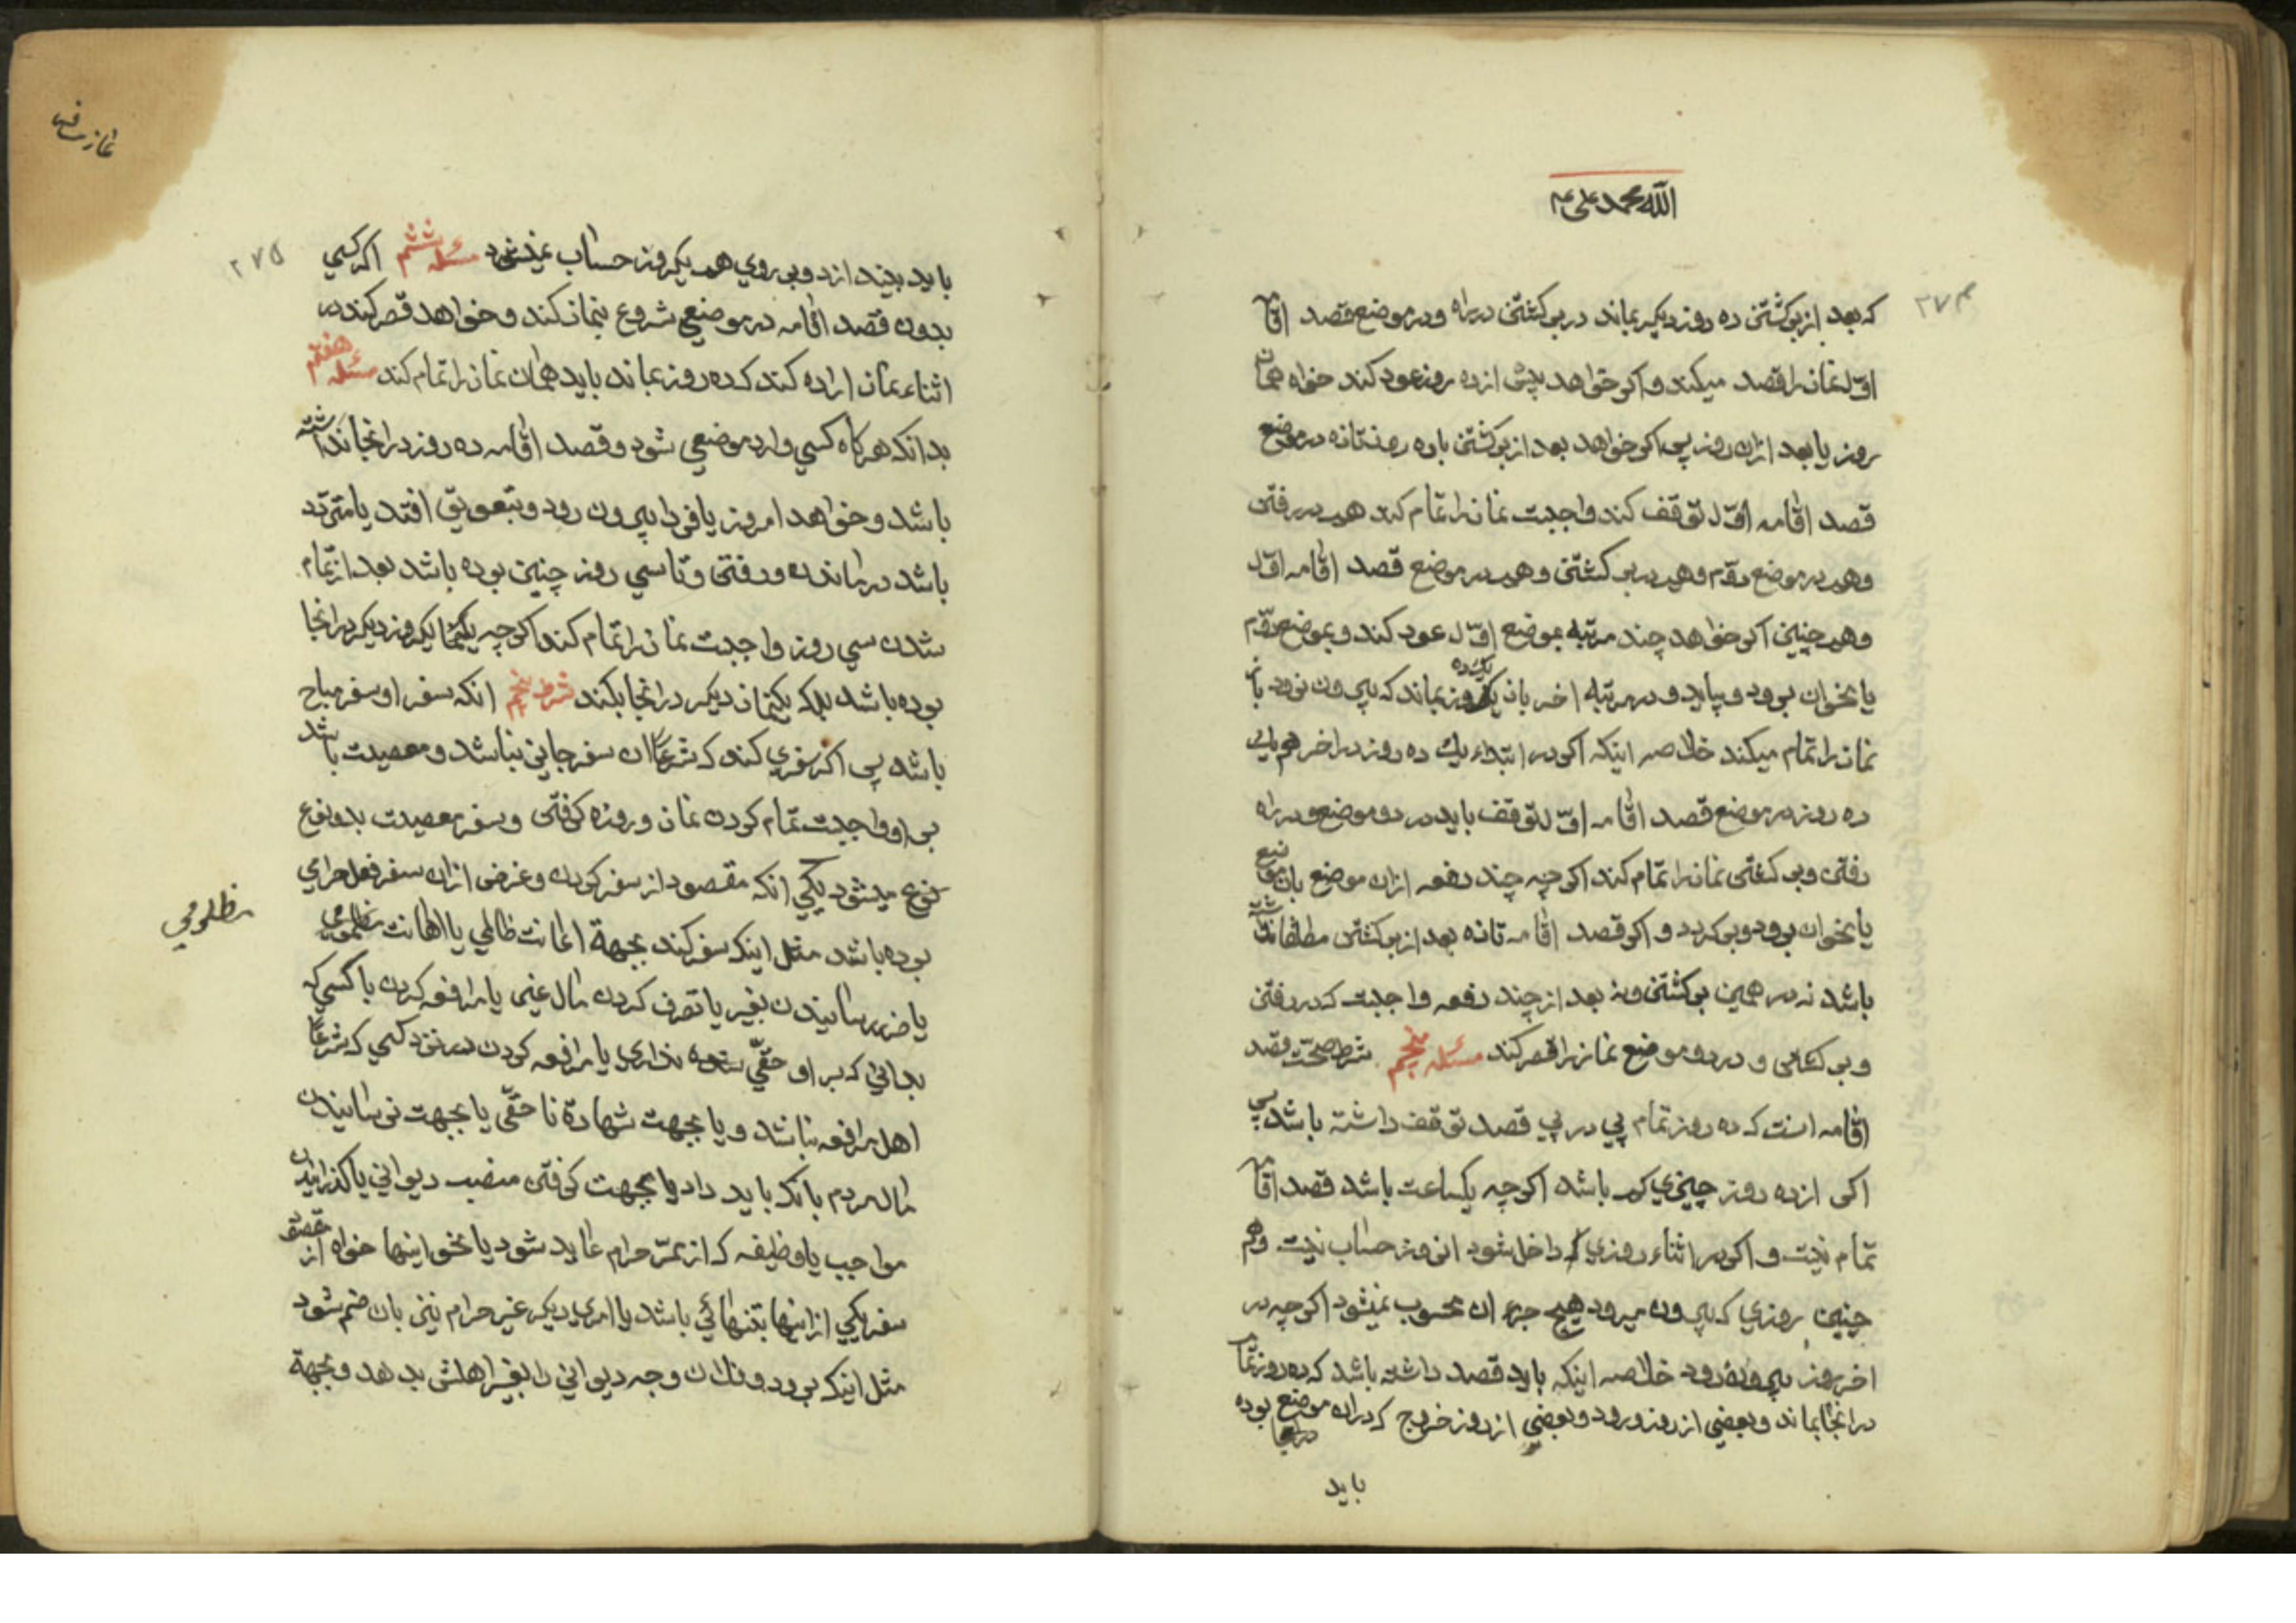 الله محمد علی
۲۷۴
که بعد از برکشتن ده روز دیکر بماند در برکشتن در راه و در موضع قصد اقامه
اول نماز را قصد میکند و اکر خواهد پیش از ده روز عود کند خواه همان
روز یا بعد از ان روز پس اکر خواهد بعد از برکشتن باز ده روز تازه در موضع
قصد اقامه اول توقف کند واجبست نماز را تمام کند هم در رفتن
و هم در موضع دوم و هم در برکشتن و هم در موضع قصد اقامه اول
و هم چنین اکر خواهد چند مرتبه بموضع اول عود کند و بموضع دوم
یا نحو ان برود و بیاید و در مرتبه اخر باز یک ده روز بماند که بیرون نرود باز
نماز را تمام میکند خلاصه اینکه اکر در ابتداء یک ده روز در اخر هم یک
ده روز در موضع قصد اقامه اول توقف باید در دو موضع و در راه
رفتن و برکشتن نماز را تمام کند اکر چه چند دفعه از ان موضع بان موضع
یا نحو ان برود و برکردد و اکر قصد اقامه تازه بعد از برکشتن مطلقا نداشته
باشد نه در همین برکشتن و نه بعد از چند دفعه واجبست که در رفتن
و برکشتن و در دو موضع نماز را قصر کند مسئله پنجم شرط صحت قصد
اقامه انست که ده روز تمام پی در پی قصد توقف داشته باشد پس
اکر از ده روز چیزی کم باشد اکر چه یکساعت باشد قصد اقامه
تمام نیست و اکر در اثناء روزی که داخل شود انروز حساب نیست و هم
چنین روزی که بیرون میرود هیچ جزء ان محسوب نمیشود اکر چه در
اخر روز بیرون رود خلاصه اینکه باید قصد داشته باشد که ده روز تمام
در انجا بماند و بعضی از روز ورود و بعضی از روز خروج که در ان موضع بوده
در انجا
باید
نماز مسافر
۲۷۵
باید بیندازد و بر روی هم یکروز حساب نمیشود مسئله ششم اکر کسی
بدون قصد اقامه در موضعی شروع بنماز کند و خواهد قصر کند در
اثناء نماز اراده کند که ده روز بماند باید همان نماز را تمام کند مسئله هفتم
بدانکه هر کاه کسی وارد موضعی شود و قصد اقامه ده روز در انجا نداشته
باشد و خواهد امروز یا فردا بیرون رود و بتعویق افتد یا متردد
باشد در ماندن و رفتن و تا سی روز چنین بوده باشد بعد از تمام
شدن سی روز واجبست نماز را تمام کند اکر چه یکنماز یکروز دیکر در انجا
بوده باشد بلکه یکنماز دیکر در انجا بکند شرط پنجم انکه سفر او سفر مباح
باشد پس اکر سفری کند که شرعا ان سفر جایز نباشد و معصیت باشد
بر او واجبست تمام کردن نماز و روزه کرفتن و سفر معصیت بدو نوع
نوع میشود یکی انکه مقصود از سفر کردن و غرض از ان سفر فعل حرامی
بوده باشد مثل اینکه سفر کند بجهة اعانت ظالمی یا اهانت مظلومی
مظلومی
یا ضرر رسانیدن بغیر یا تصرف کردن مال غیر یا مرافعه کردن با کسی که
بداند که بر او حقی ندارد یا مرافعه کردن در نزد کسی که شرعا
اهل مرافعه نباشد و یا بجهت شهادة ناحقی یا بجهت نرسانیدن
مال مردم بانکه باید داد یا بجهت کرفتن منصب دیوانی یا کذرانیدن
مواجب یا وظیفه که از ممر حرام عاید شود یا نحو اینها خواه مقصود از
سفر یکی از اینها بتنهائی باشد یا امری دیکر غیر حرام نیز بان ضم شود
مثل اینکه برود و فلان وجه دیوانی را بغیر اهلش بدهد و بجهة